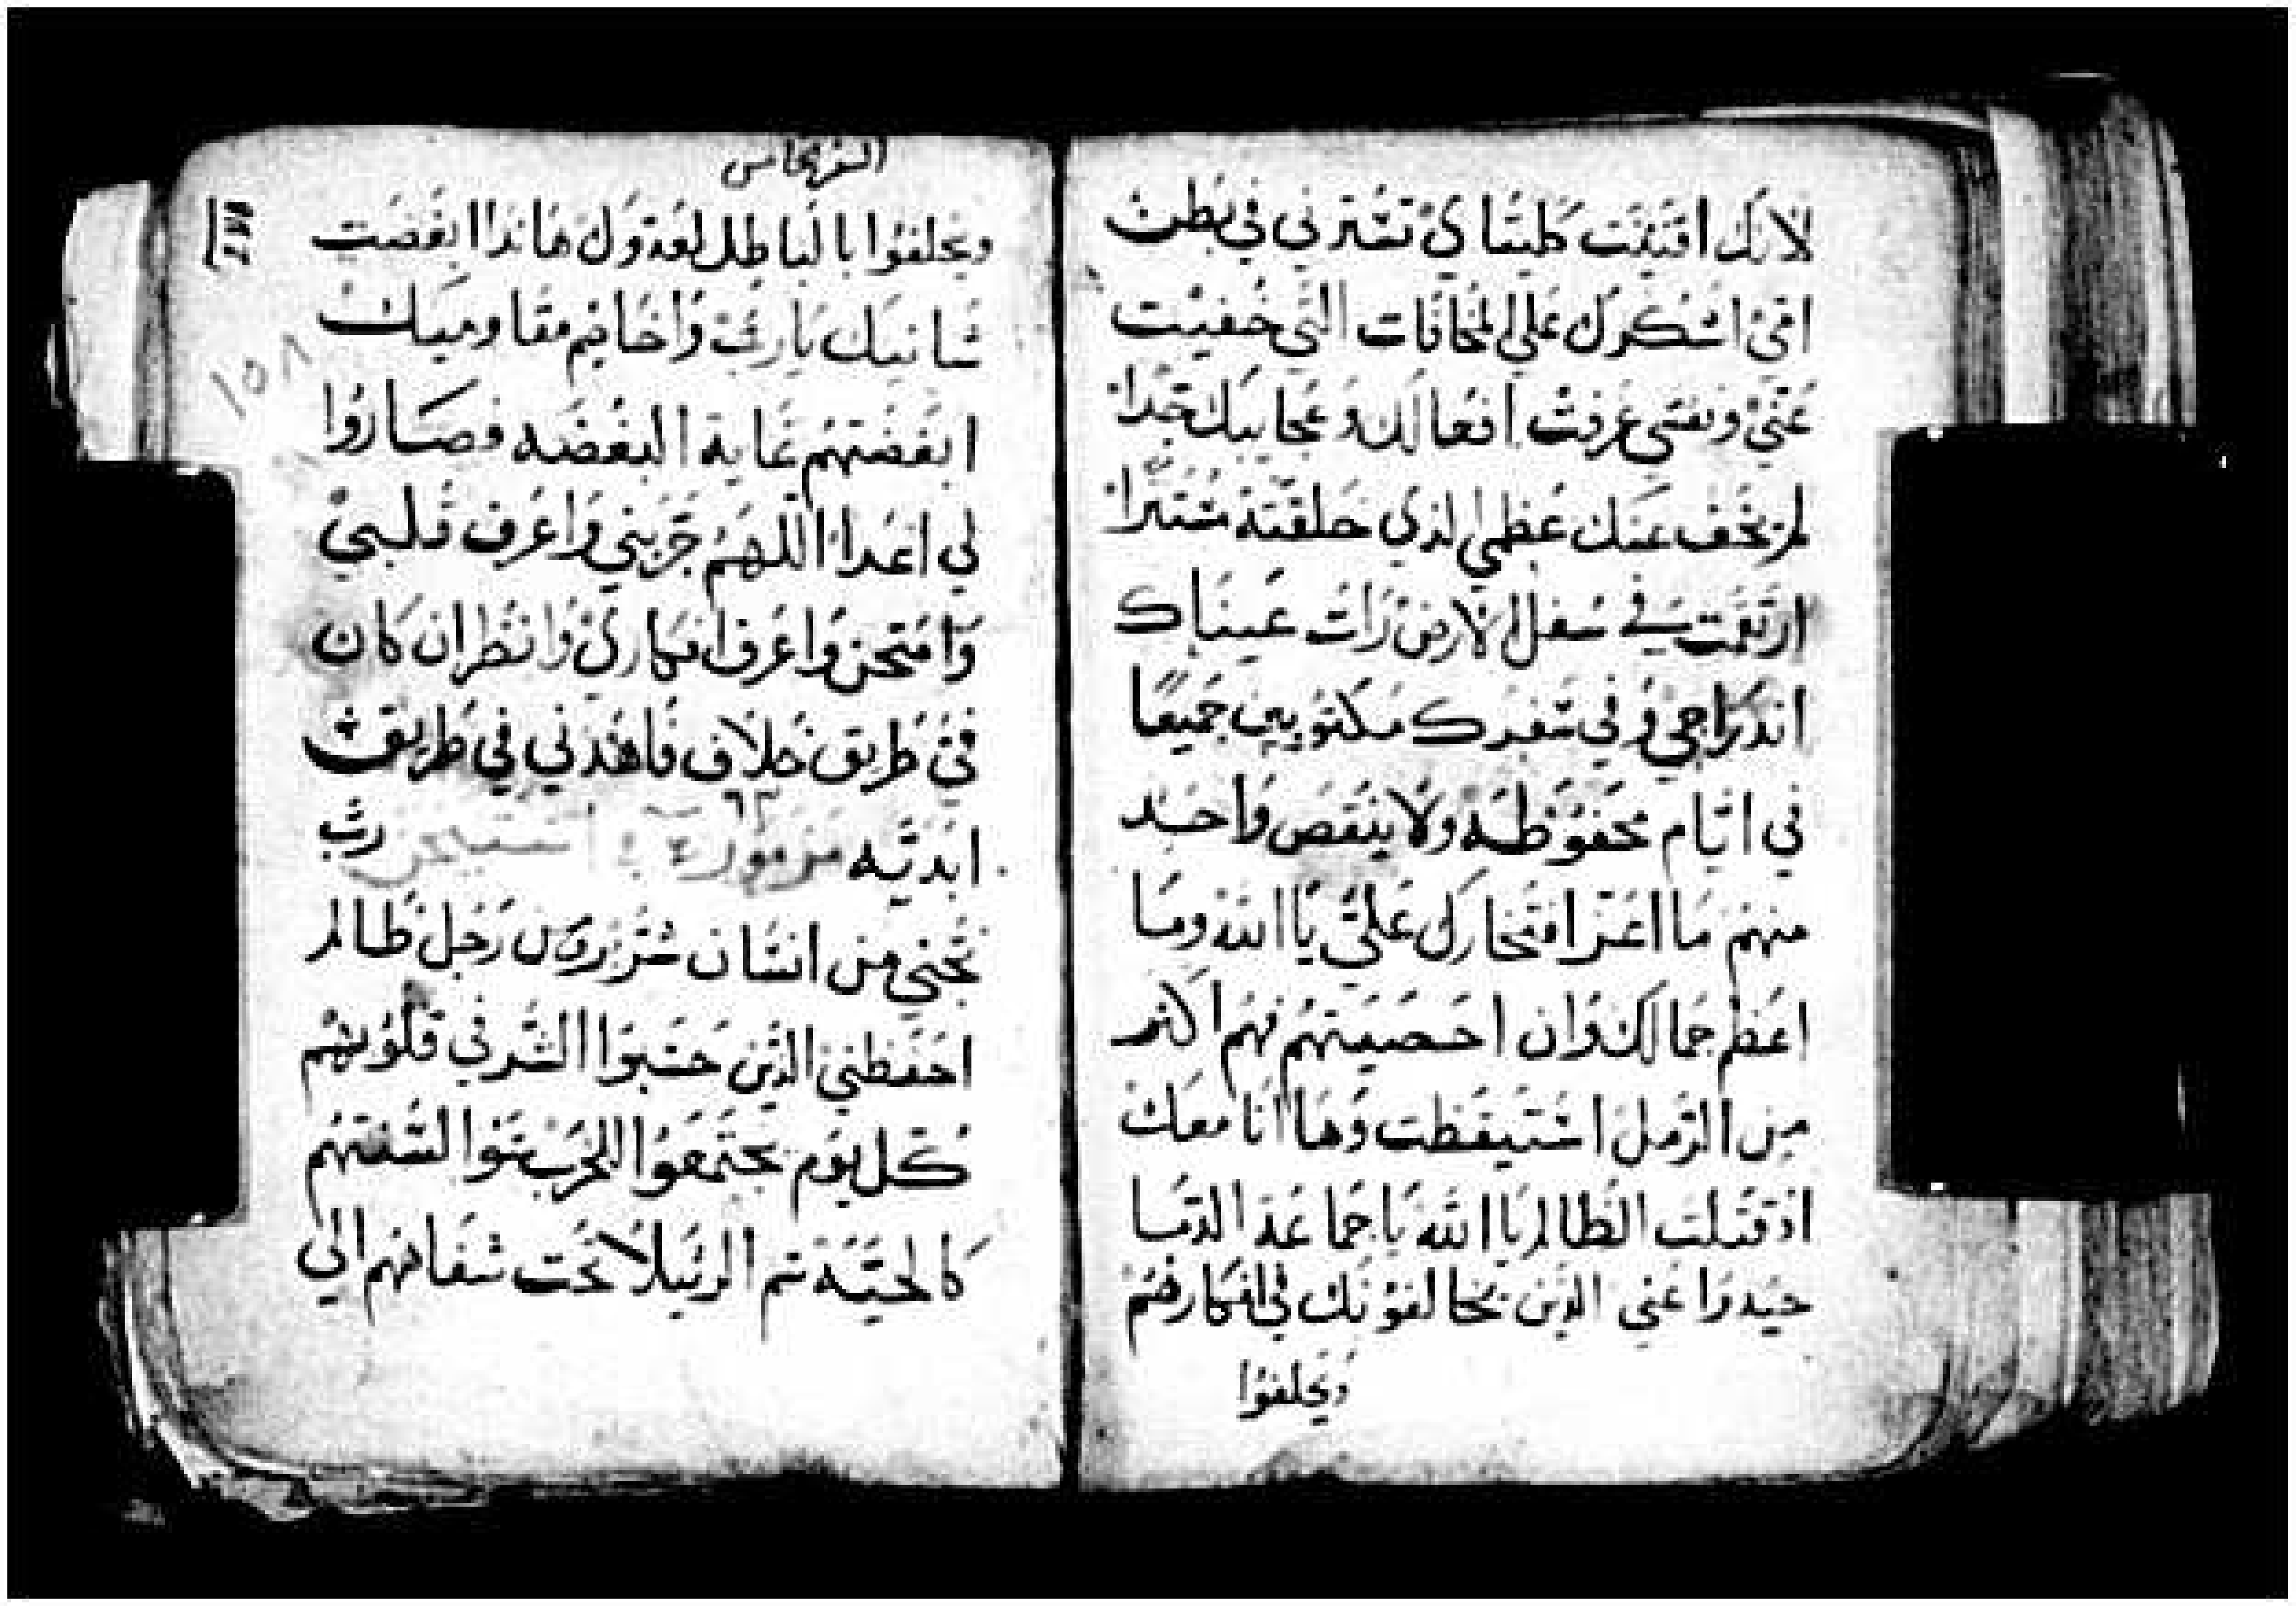 لانك اقتنيت كليتاي تسترني في بطن
امي اشكرك علي المخافات التي خفيت
عني ونفسي عرفت افعالك وعجايبك جدا
لم يخف عنك عظمي الذي خلقته مستترا
ارتقمت في سفل الارض رات عيناك
اندراجي وفي سفرك مكتوبين جميعا
في ايام محفوظه ولا ينقص واحد
منهم ما اعز افتخارك علي يا الله وما
اعظم جمالك وان احصيتهم فهم اكثر
من الرمل استيقظت وها انا معك
اذ قتلت الظالم يا الله يا جماعة الدما
حيدوا عني الذين يخالفونك في افكارهم
ويحلفوا
ويحلفوا بالباطل لعدوك هاندا ابغضت
شانيك يارب واخاصم مقاوميك
ابغضتهم غاية البغضه فصاروا
لي اعدا اللهم جربني واعرف قلبي
وامتحن واعرف افكاري وانظر ان كان
في طريق خلاف فاهدني في طريق
ابديه مزمور رب
نجني من انسان شرير ومن رجل ظالم
احفظني الذين حسبوا الشر في قلوبهم
كل يوم يجتمعوا للحرب سنوا السنتهم
كالحيه سم الرتيلا تحت شفاههم الي